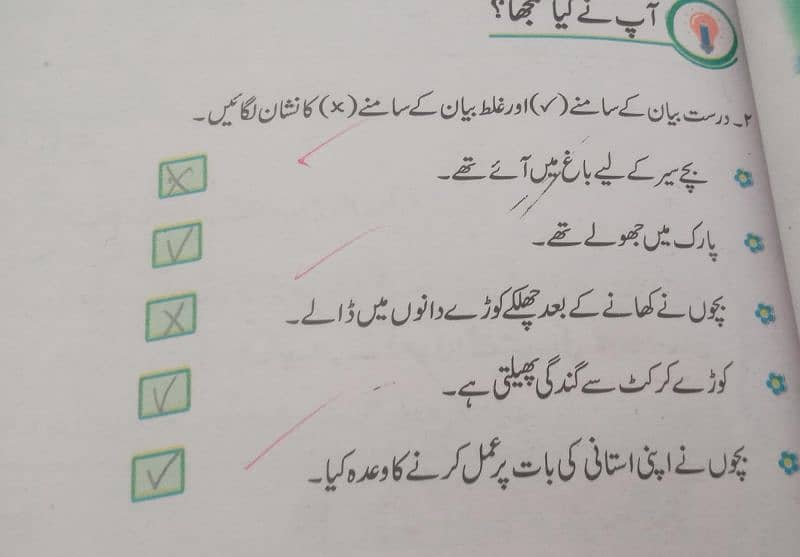 آپ نے کیا سمجھا؟
۲۔ درست بیان کے سامنے (✓) اور غلط بیان کے سامنے (×) کا نشان لگائیں۔
بچے سیر کے لیے باغ میں آئے تھے۔ ×
پارک میں جھولے تھے۔ ✓
بچوں نے کھانے کے بعد چھلکے کوڑے دانوں میں ڈالے۔ ×
کوڑے کرکٹ سے گندگی پھیلتی ہے۔ ✓
بچوں نے اپنی استانی کی بات پر عمل کرنے کا وعدہ کیا۔ ✓